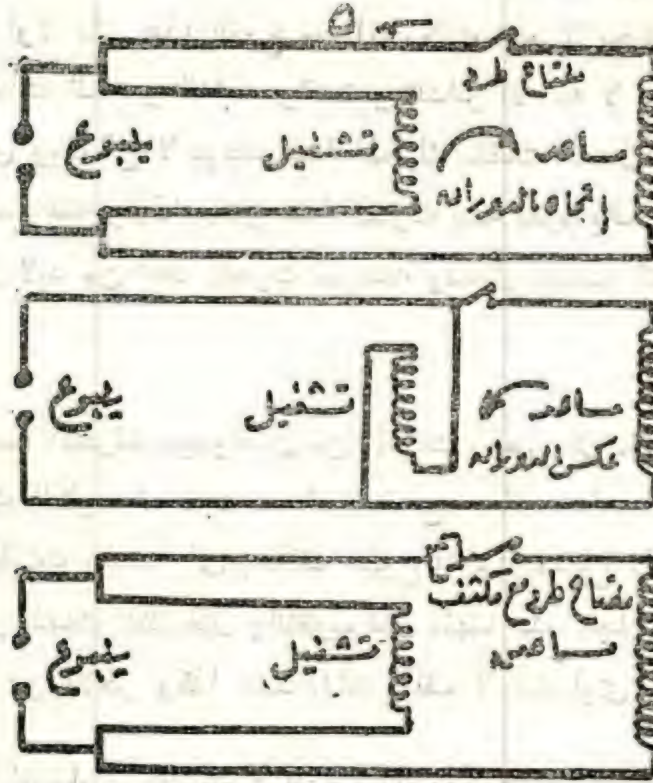 مفتاح طرد
ينبوع تشغيل ساعد
إتجاه الدورانه
ينبوع تشغيل ساعد
عكس الدورانه
مفتاح طرد مع مكثف
ينبوع تشغيل